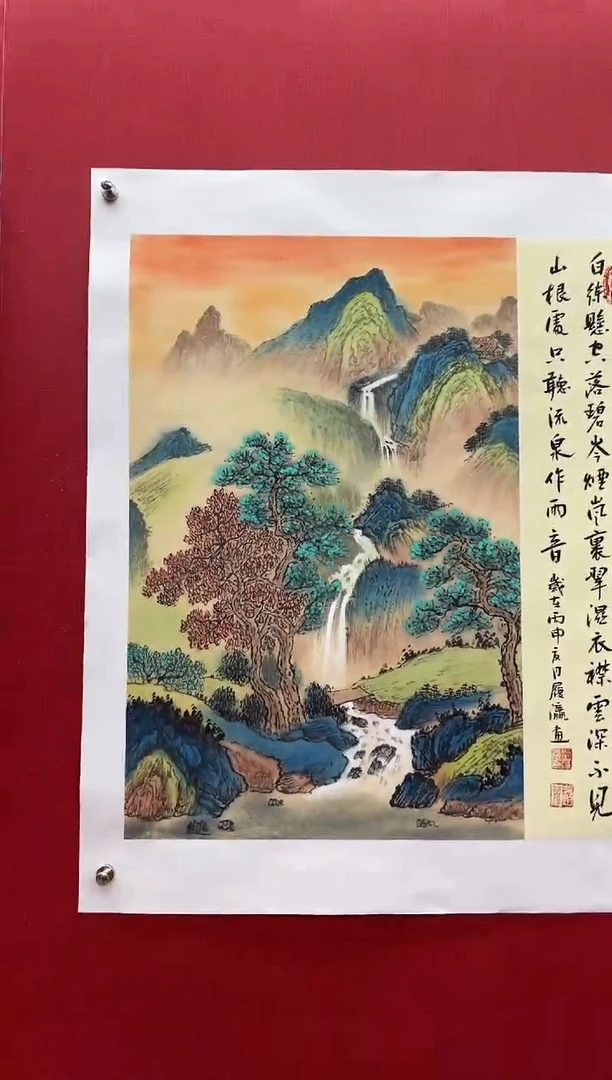 白練懸空落碧岑煙嵐裏翠濕衣襟雲深不見
山根處只聽流泉作雨音 歲在丙申亥月履瀛畫